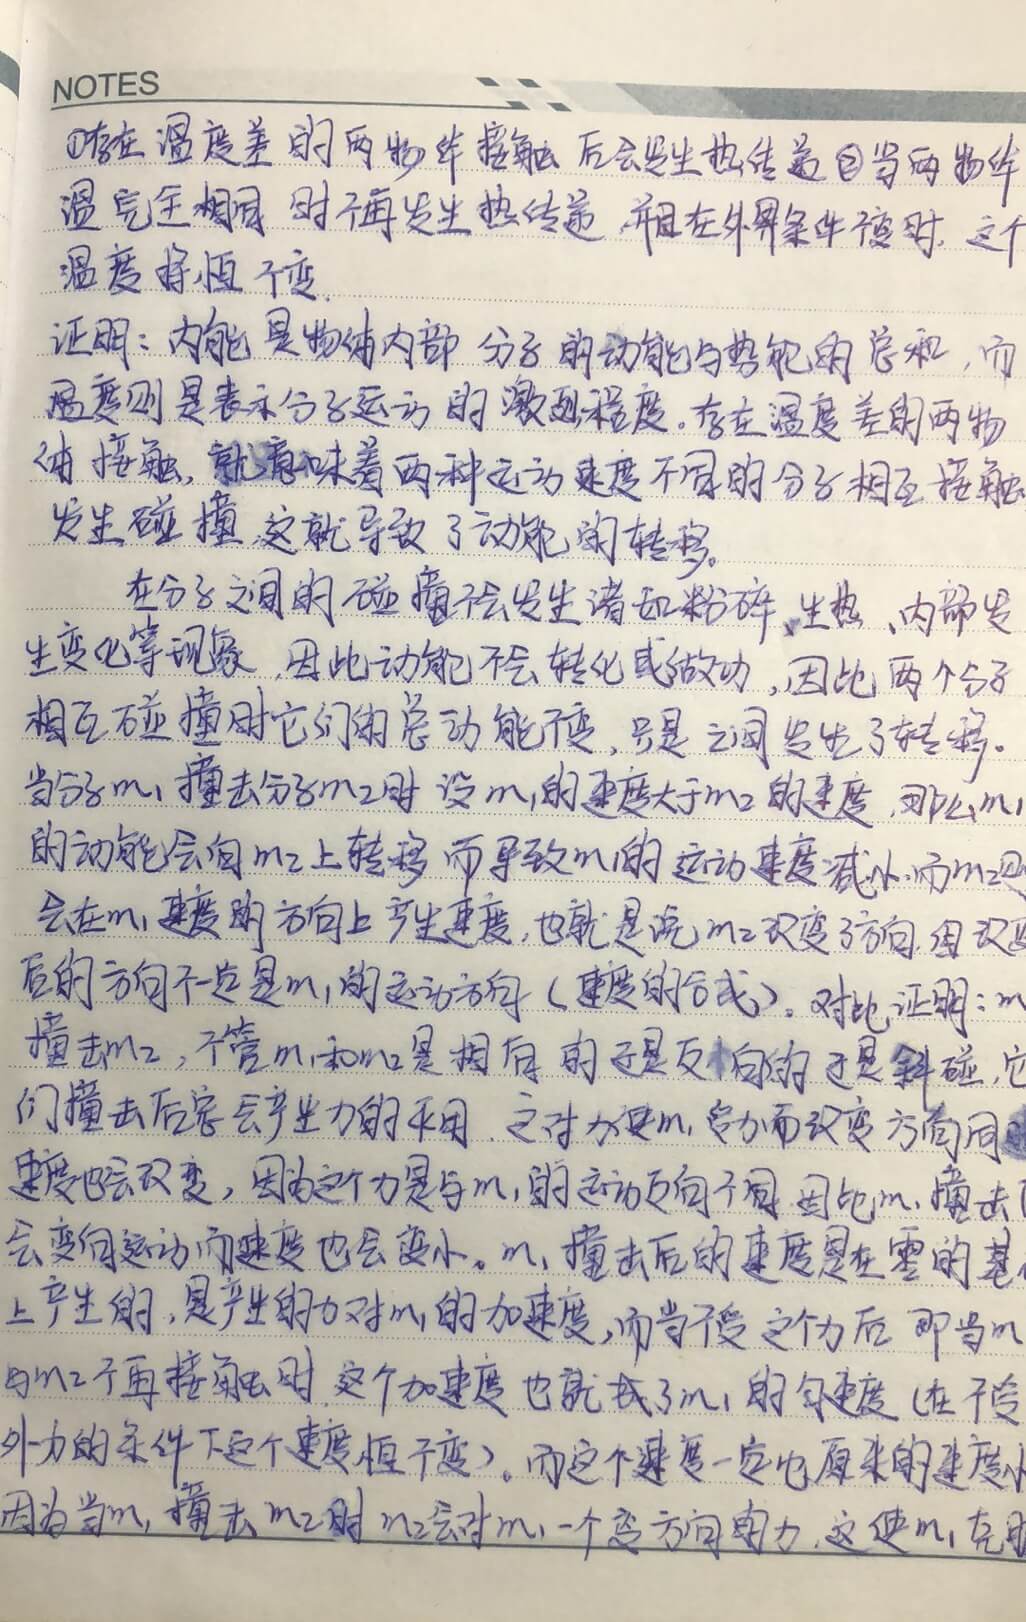 NOTES
①存在温度差的两物体接触后会发生热传递②当两物体
温完全相同时不再发生热传递,并且在外界条件不变时,这个
温度将恒不变.
证明：内能是物体内部分子的动能与势能的总和,而
温度则是表示分子运动的激烈程度。存在温度差的两物
体接触,就意味着两种运动速度不同的分子相互接触
发生碰撞,这就导致了动能的转移。
在分子之间的碰撞不会发生诸如粉碎、生热、内部发
生变化等现象,因此动能不会转化或做功,因此两个分子
相互碰撞时它们的总动能不变,只是之间发生了转移。
当分子m₁撞击分子m₂时设m₁的速度大于m₂的速度,那么m₁
的动能会向m₂上转移而导致m₁的运动速度减小,而m₂
会在m₁速度的方向上产生速度,也就是说m₂改变了方向,但改变
后的方向不一定是m₁的运动方向（速度的合成）。对此证明：m
撞击m₂,不管m₁和m₂是相向的还是反向的还是斜碰,它
们撞击后总会产生力的作用,这对力使m₁受力而改变方向同
速度也会改变,因为这个力是与m₁的运动方向不同,因此m₁撞击
会变向运动而速度也会变小。m₁撞击后的速度是在零的基
上产生的,是产生的力对m₁的加速度,而当不受这个力后即当m
与m₂不再接触时,这个加速度也就成了m₁的匀速度(在不受
外力的条件下这个速度恒不变)。而这个速度一定比原来的速度小
因为当m₁撞击m₂时m₂会对m₁一个变方向的力,这使m₁克服